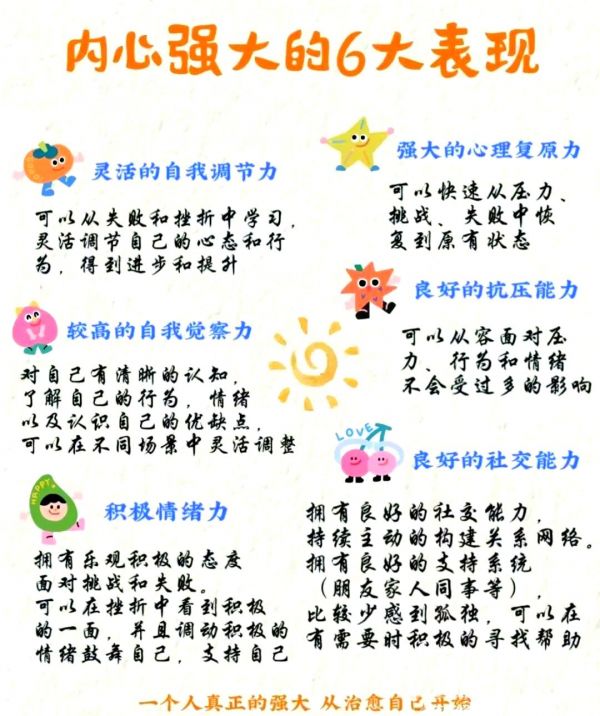 内心强大的6大表现
灵活的自我调节力
可以从失败和挫折中学习，
灵活调节自己的心态和行
为，得到进步和提升
强大的心理复原力
可以快速从压力、
挑战、失败中恢
复到原有状态
较高的自我觉察力
对自己有清晰的认知，
了解自己的行为，情绪
以及认识自己的优缺点，
可以在不同场景中灵活调整
良好的抗压能力
可以从容面对压
力、行为和情绪
不会受过多的影响
HAPPY
积极情绪力
拥有乐观积极的态度
面对挑战和失败。
可以在挫折中看到积极
的一面，并且调动积极的
情绪鼓舞自己，支持自己
LOVE
良好的社交能力
拥有良好的社交能力，
持续主动的构建关系网络。
拥有良好的支持系统
（朋友家人同事等），
比较少感到孤独，可以在
有需要时积极的寻找帮助
一个人真正的强大 从治愈自己开始